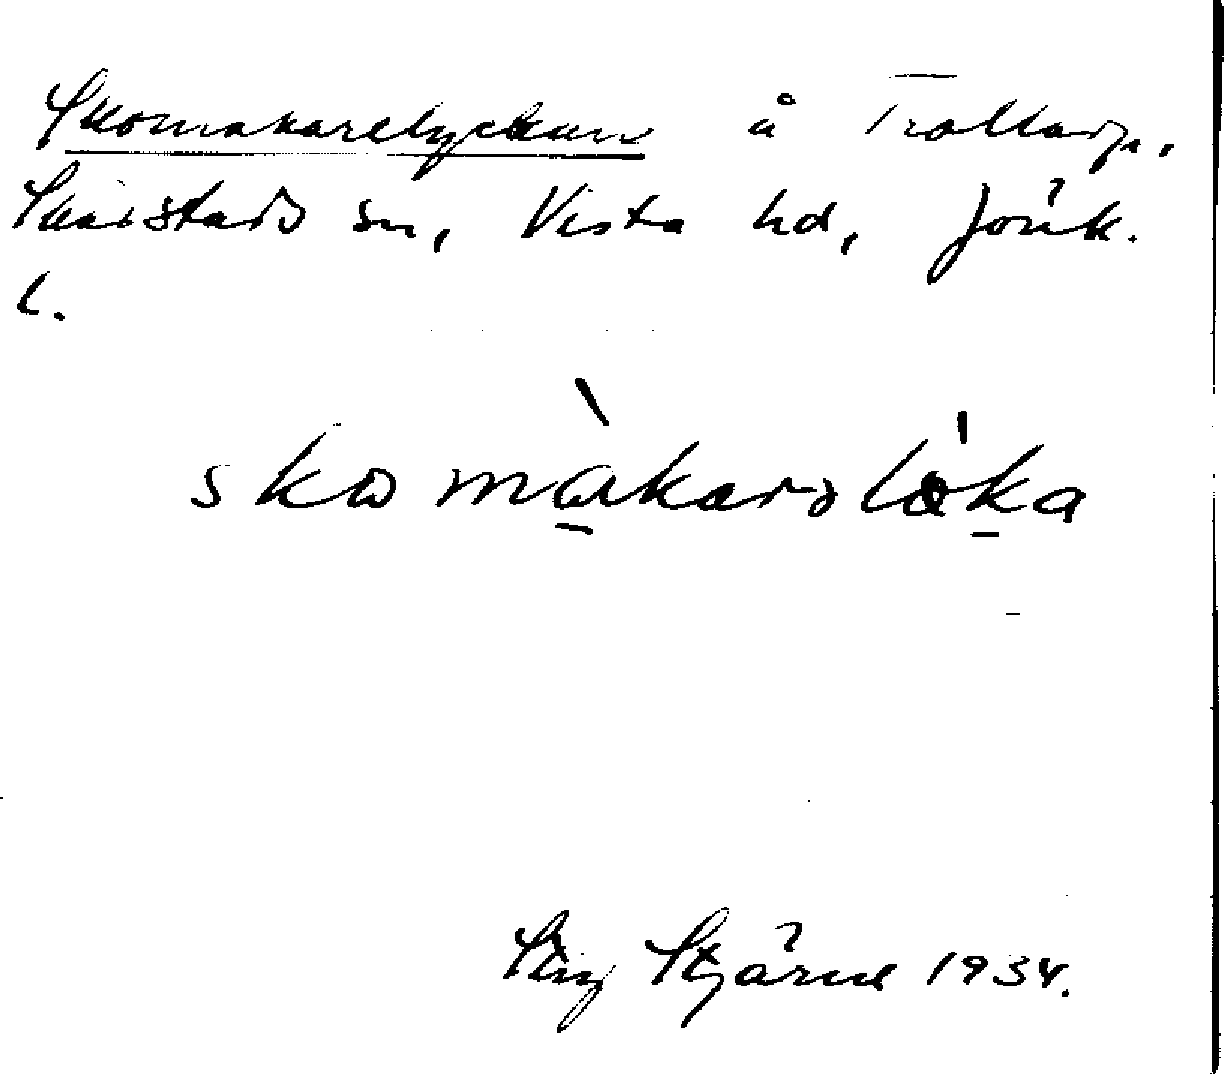 Skomakarelyckan å Trollarp,
Skärstads sn, Vista hd, Jönk.
l.
skomàkarəlø̍ka
Stig Stjärne 1934.